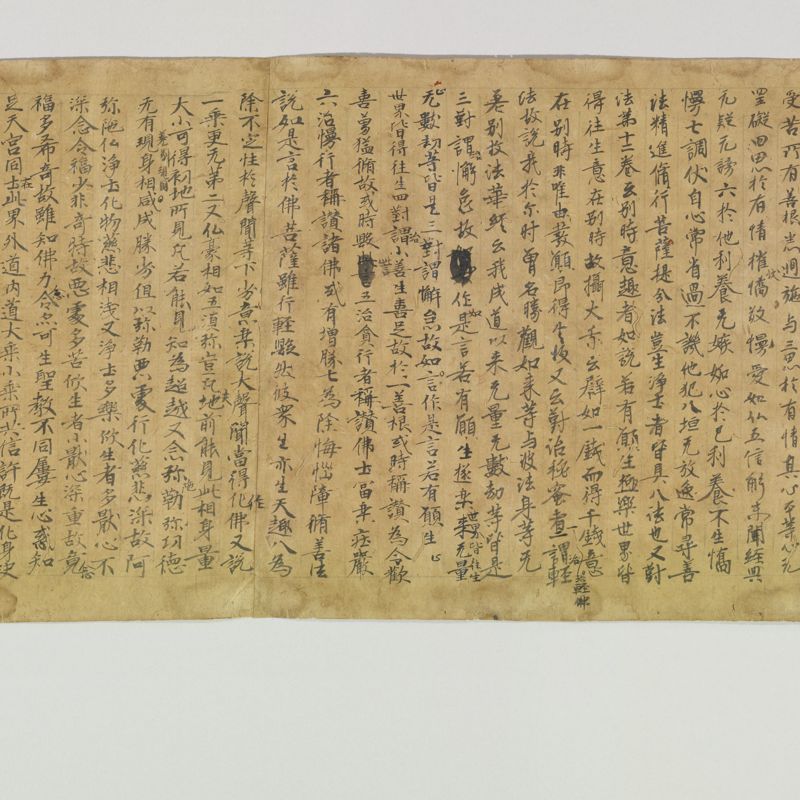 受苦所有善根悉迴施与三思於有情其心平等心无
罣礙四思於有情摧憍敬慢愛如仏五信解未聞經典
无疑无謗六於他利養无嫉妬心於己利養不生憍
慢七調伏自心常省過不譏他犯八垣无放逸常尋善
法精進脩行菩薩提分法豈生浄土者皆具八法也又對
法第十二卷云別時意趣者如說若有願生極樂世界皆
得往生意在別時故攝大乘云譬如一錢而得千錢意
在別時非唯由發願即得生彼又云對治秘密者謂輕
法故說我於尓時曽名勝觀如来等与彼法身等无
差別故法華經云我成道以来无量无數劫等皆是
三對謂懈怠故作是言若有願生極樂世界皆往生来无量
无數劫等皆是三對謂懈怠故如言作是言若有願生
世界皆得往生四對謂小善生喜足故於一善根或時稱讚為令歡
喜勇猛脩故或時毀五治貪行者稱讚佛土冨樂莊嚴
六治慢行者稱讚諸佛或有增勝七為除悔惱障脩善法
說如是言於佛菩薩雖行輕毀然彼衆生亦生天趣八為
除不定性於聲聞等下劣意樂說大聲聞當得作佛又說
一乘更无第二又仏豪相如五須弥豈凡地前能見此相身量
大小可得初地所見凡若能見知為越越又念弥勒弥功德
无有現身相成成勝劣但以弥勒惡處行化慈悲深故阿
弥陁仏浄土化物慈悲相浅又浄土多樂欣生者多厭心不
深念令福少非奇特故惡處多苦欣生者小厭心深重故竟
福多希奇故雖知佛力念亦可生聖教不同屢生心惑知
足天宮同在此界外道内道大乗小乗所共信許既是化身史